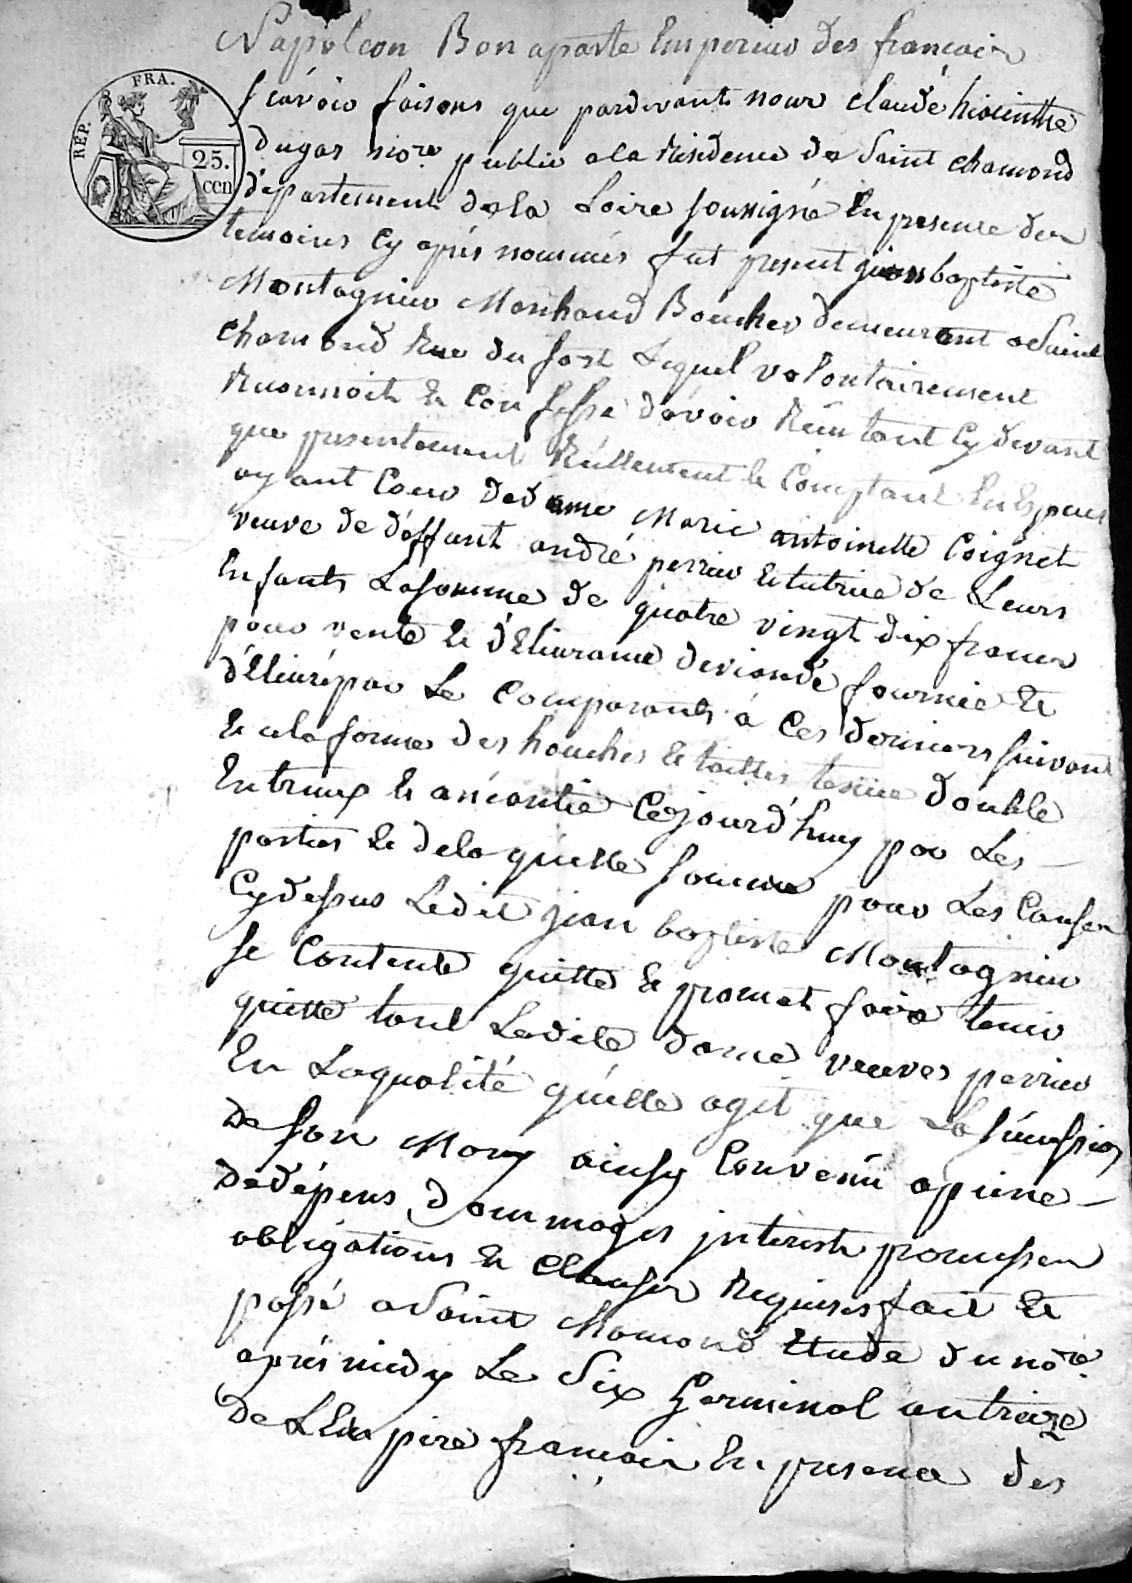 Napoleon Bonaparte Empereur des francois
REP. FRA.
25. cen
scavoir faisons que pardevant nous claude hiacinthe
dugas nore public a la Residence de Saint chamond
departement de la Loire soussigné En presence des
temoins Cy après nommés fut present jean baptiste
Montagnier Marchand Boucher demeurant a Saint
chamond Rue du fort Lequel volontairement
Reconnoit & Confesse d'avoir Reçu tant Cy devant
que presentement Réellement & Comptant En Especes
ayant Cour de dame Marie antoinette Coignet
veuve de déffunt andré perrier & tutrice de Leurs
Enfants La somme de quatre vingt dix francs
pour vente & d'Elivrance de viande fournie &
d'Elivré par Le Comparant à Ces derniers suivant
& a la forme des houches & tailles tenue double
Entreux & anéantie Cejourd'huy par Les
parties & de laquelle somme pour Les Causes
Cydessus Ledit jean baptiste Montagnier
se Contente quitte & promet faire tenir
quitte tant Ladite dame veuve perrier
En Laqualité qu'elle agit que La sucession
de son Mary ainsy Convenu a peine
de dépens dommages interests promesses
obligations & Clauses Requises fait &
passé a Saint chamond Etude du nore
après midy Le Six Germinal an treize
de L'Empire francois En presence des